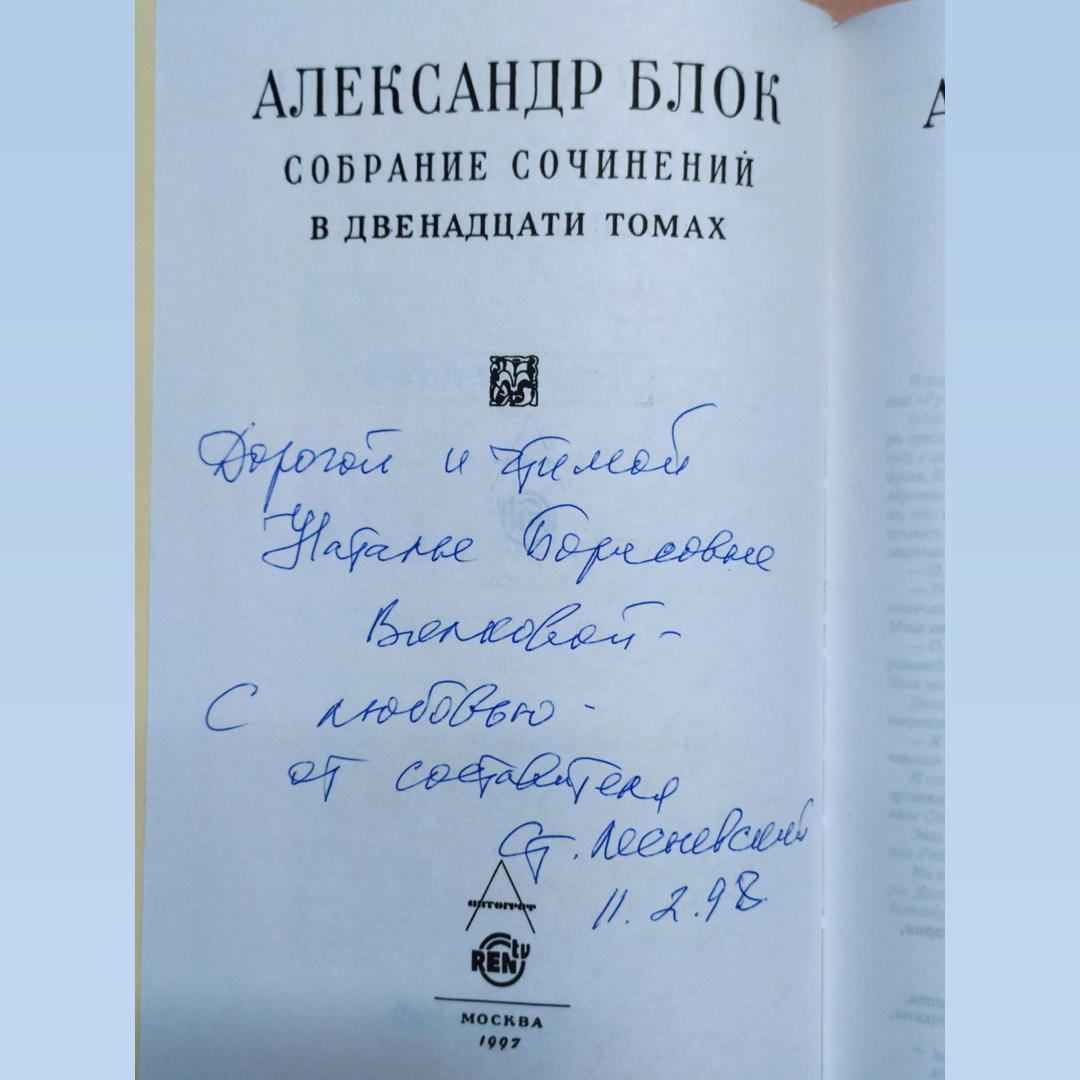 АЛЕКСАНДР БЛОК
СОБРАНИЕ СОЧИНЕНИЙ
В ДВЕНАДЦАТИ ТОМАХ
Дорогой и
Наталье Борисовне
Волковой –
С любовью –
от составителя
Ст. Лесневский
11.2.98
автограф
REN tv
МОСКВА
1997